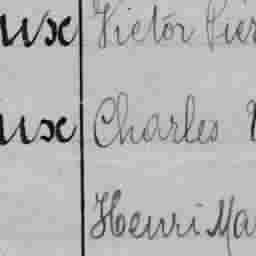 ux Victor Pier
ux Charles
Henri Ma